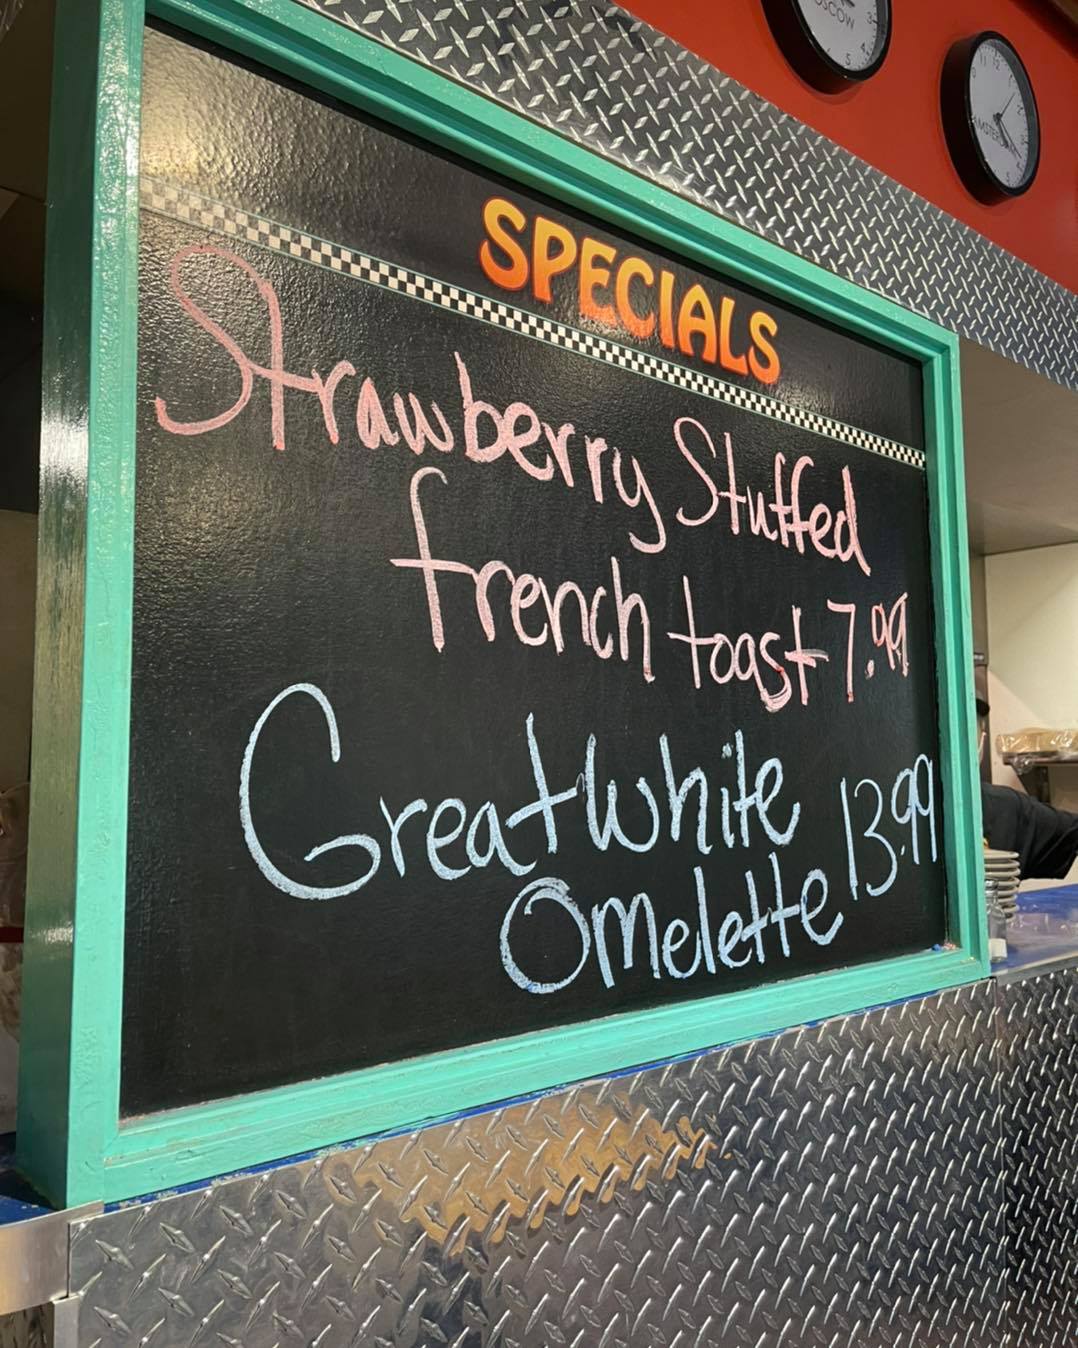 SPECIALS
Strawberry Stuffed
french toast 7.99
Great White 13.99
Omelette